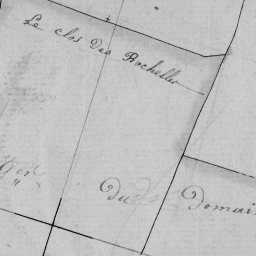 Le clos Des Rochelles
Du
Domai